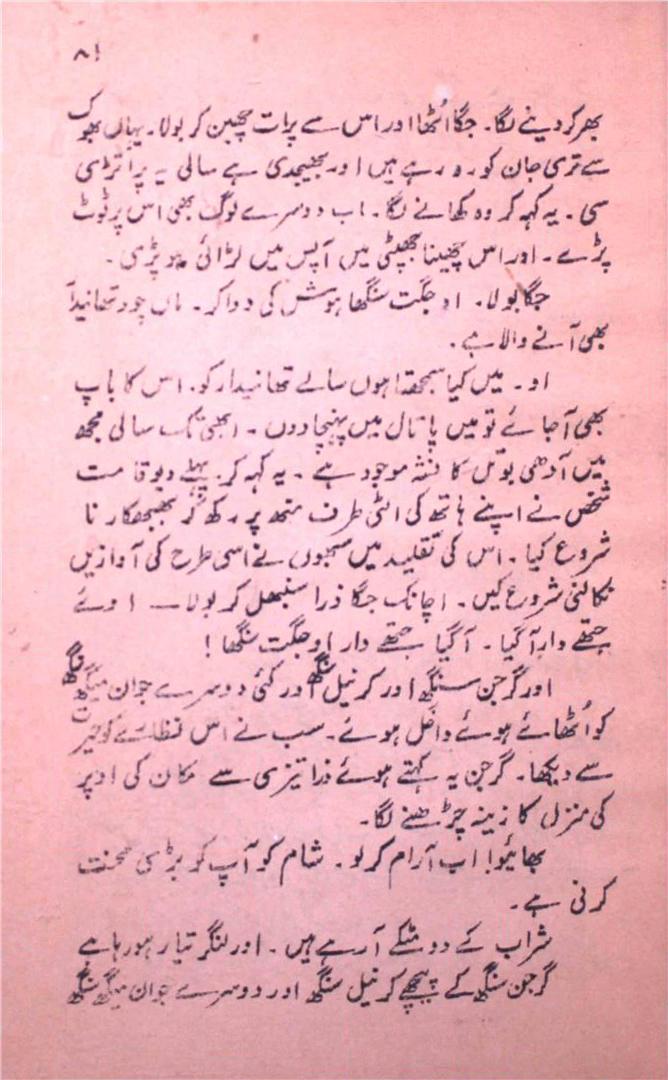 ۸۱
بھر کر دینے لگا۔ جگا اُٹھا اور اس سے پرات چھین کر بولا۔ یہاں بھوک
سے تری جان کو رہ رہے ہیں اور بھیجدی ہے سالی یہ پراتڑی
سی۔ یہ کہہ کر وہ کھانے لگا۔ اب دوسرے لوگ بھی اس پر ٹوٹ
پڑے۔ اور اس چھینا جھپٹی میں آپس میں لڑائی ہو پڑی۔
جگا بولا۔ او جگت سنگھا ہوش کی دوا کر۔ ماں چود تھانیدار
بھی آنے والا ہے۔
او۔ میں کیا سمجھتا ہوں سالے تھانیدار کو۔ اس کا باپ
بھی آجائے تو میں پاتال میں پہنچا دوں۔ ابھی تک سالی مجھ
میں آدھی بوتل کا نشہ موجود ہے۔ یہ کہہ کر پہلے دیو قامت
شخص نے اپنے ہاتھ کی الٹی طرف منھ پر رکھ کر بھبھکارنا
شروع کیا۔ اس کی تقلید میں سبھوں نے اسی طرح کی آوازیں
نکالنی شروع کیں۔ اچانک جگا ذرا سنبھل کر بولا — اوئے
جتھے دار آگیا۔ آگیا جتھے دار او جگت سنگھا!
اور گرجن سنگھ اور کرنیل سنگھ اور کئی دوسرے جوان میگھ سنگھ
کو اُٹھائے ہوئے داخل ہوئے۔ سب نے اس نظارے کو حیرت
سے دیکھا۔ گرجن یہ کہتے ہوئے ذرا تیزی سے مکان کی اوپر
کی منزل کا زینہ چڑھنے لگا۔
بھائیو! اب آرام کر لو۔ شام کو آپ کو بڑی محنت
کرنی ہے۔
شراب کے دو مٹکے آ رہے ہیں۔ اور لنگر تیار ہو رہا ہے
گرجن سنگھ کے پیچھے کرنیل سنگھ اور دوسرے جوان میگھ سنگھ